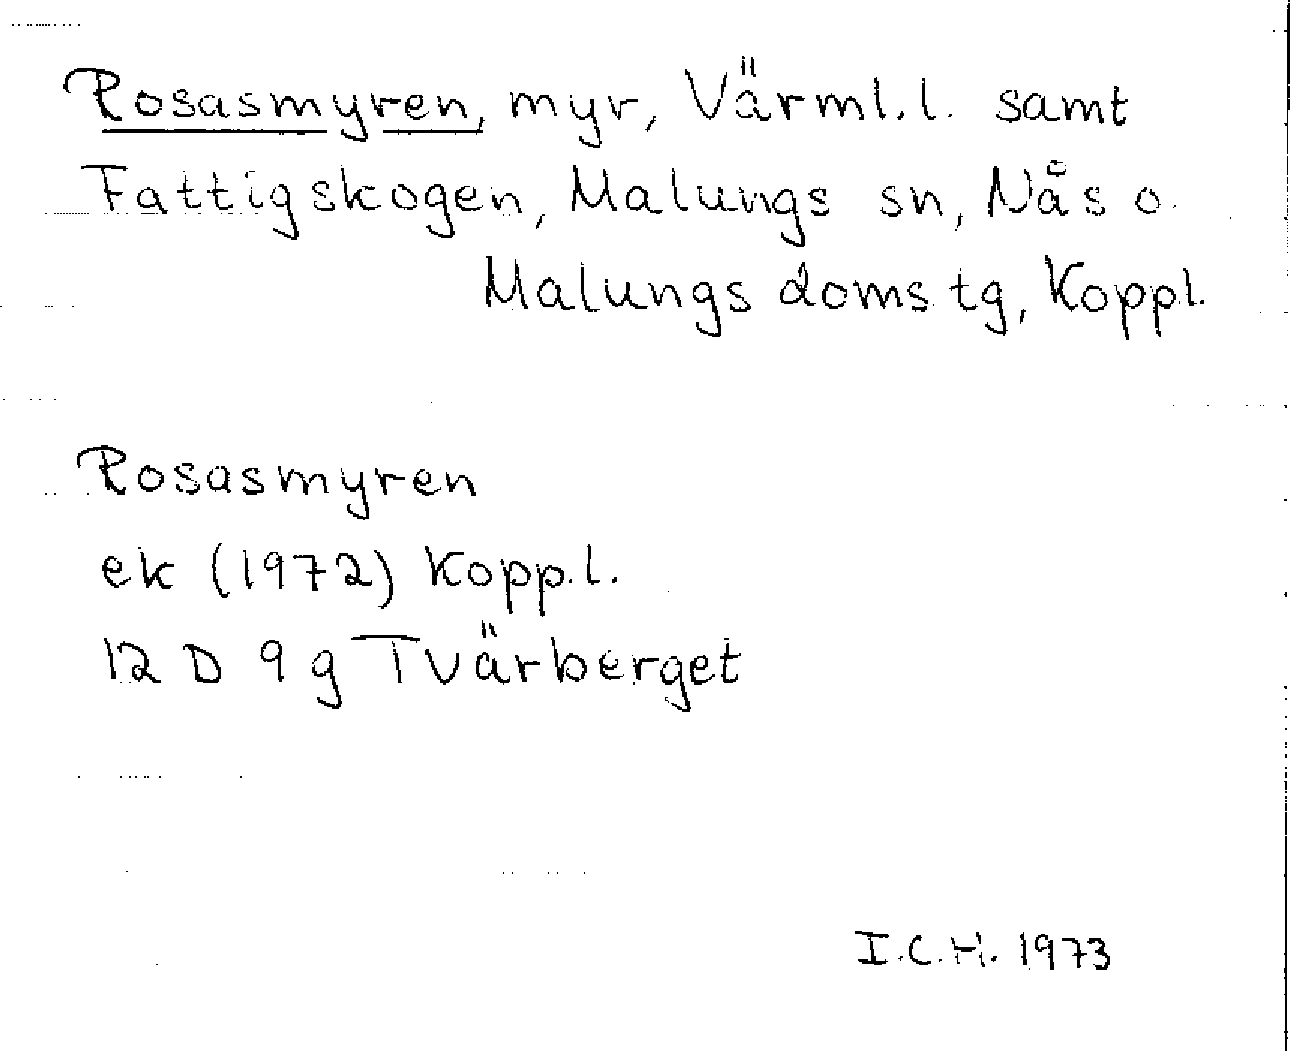 Rosasmyren, myr, Värml.l. samt
Fattigskogen, Malungs sn, Nås o.
Malungs doms tg, Koppl.
Rosasmyren
ek (1972) Kopp.l.
12 D 9 g Tvärberget
I.C.H. 1973